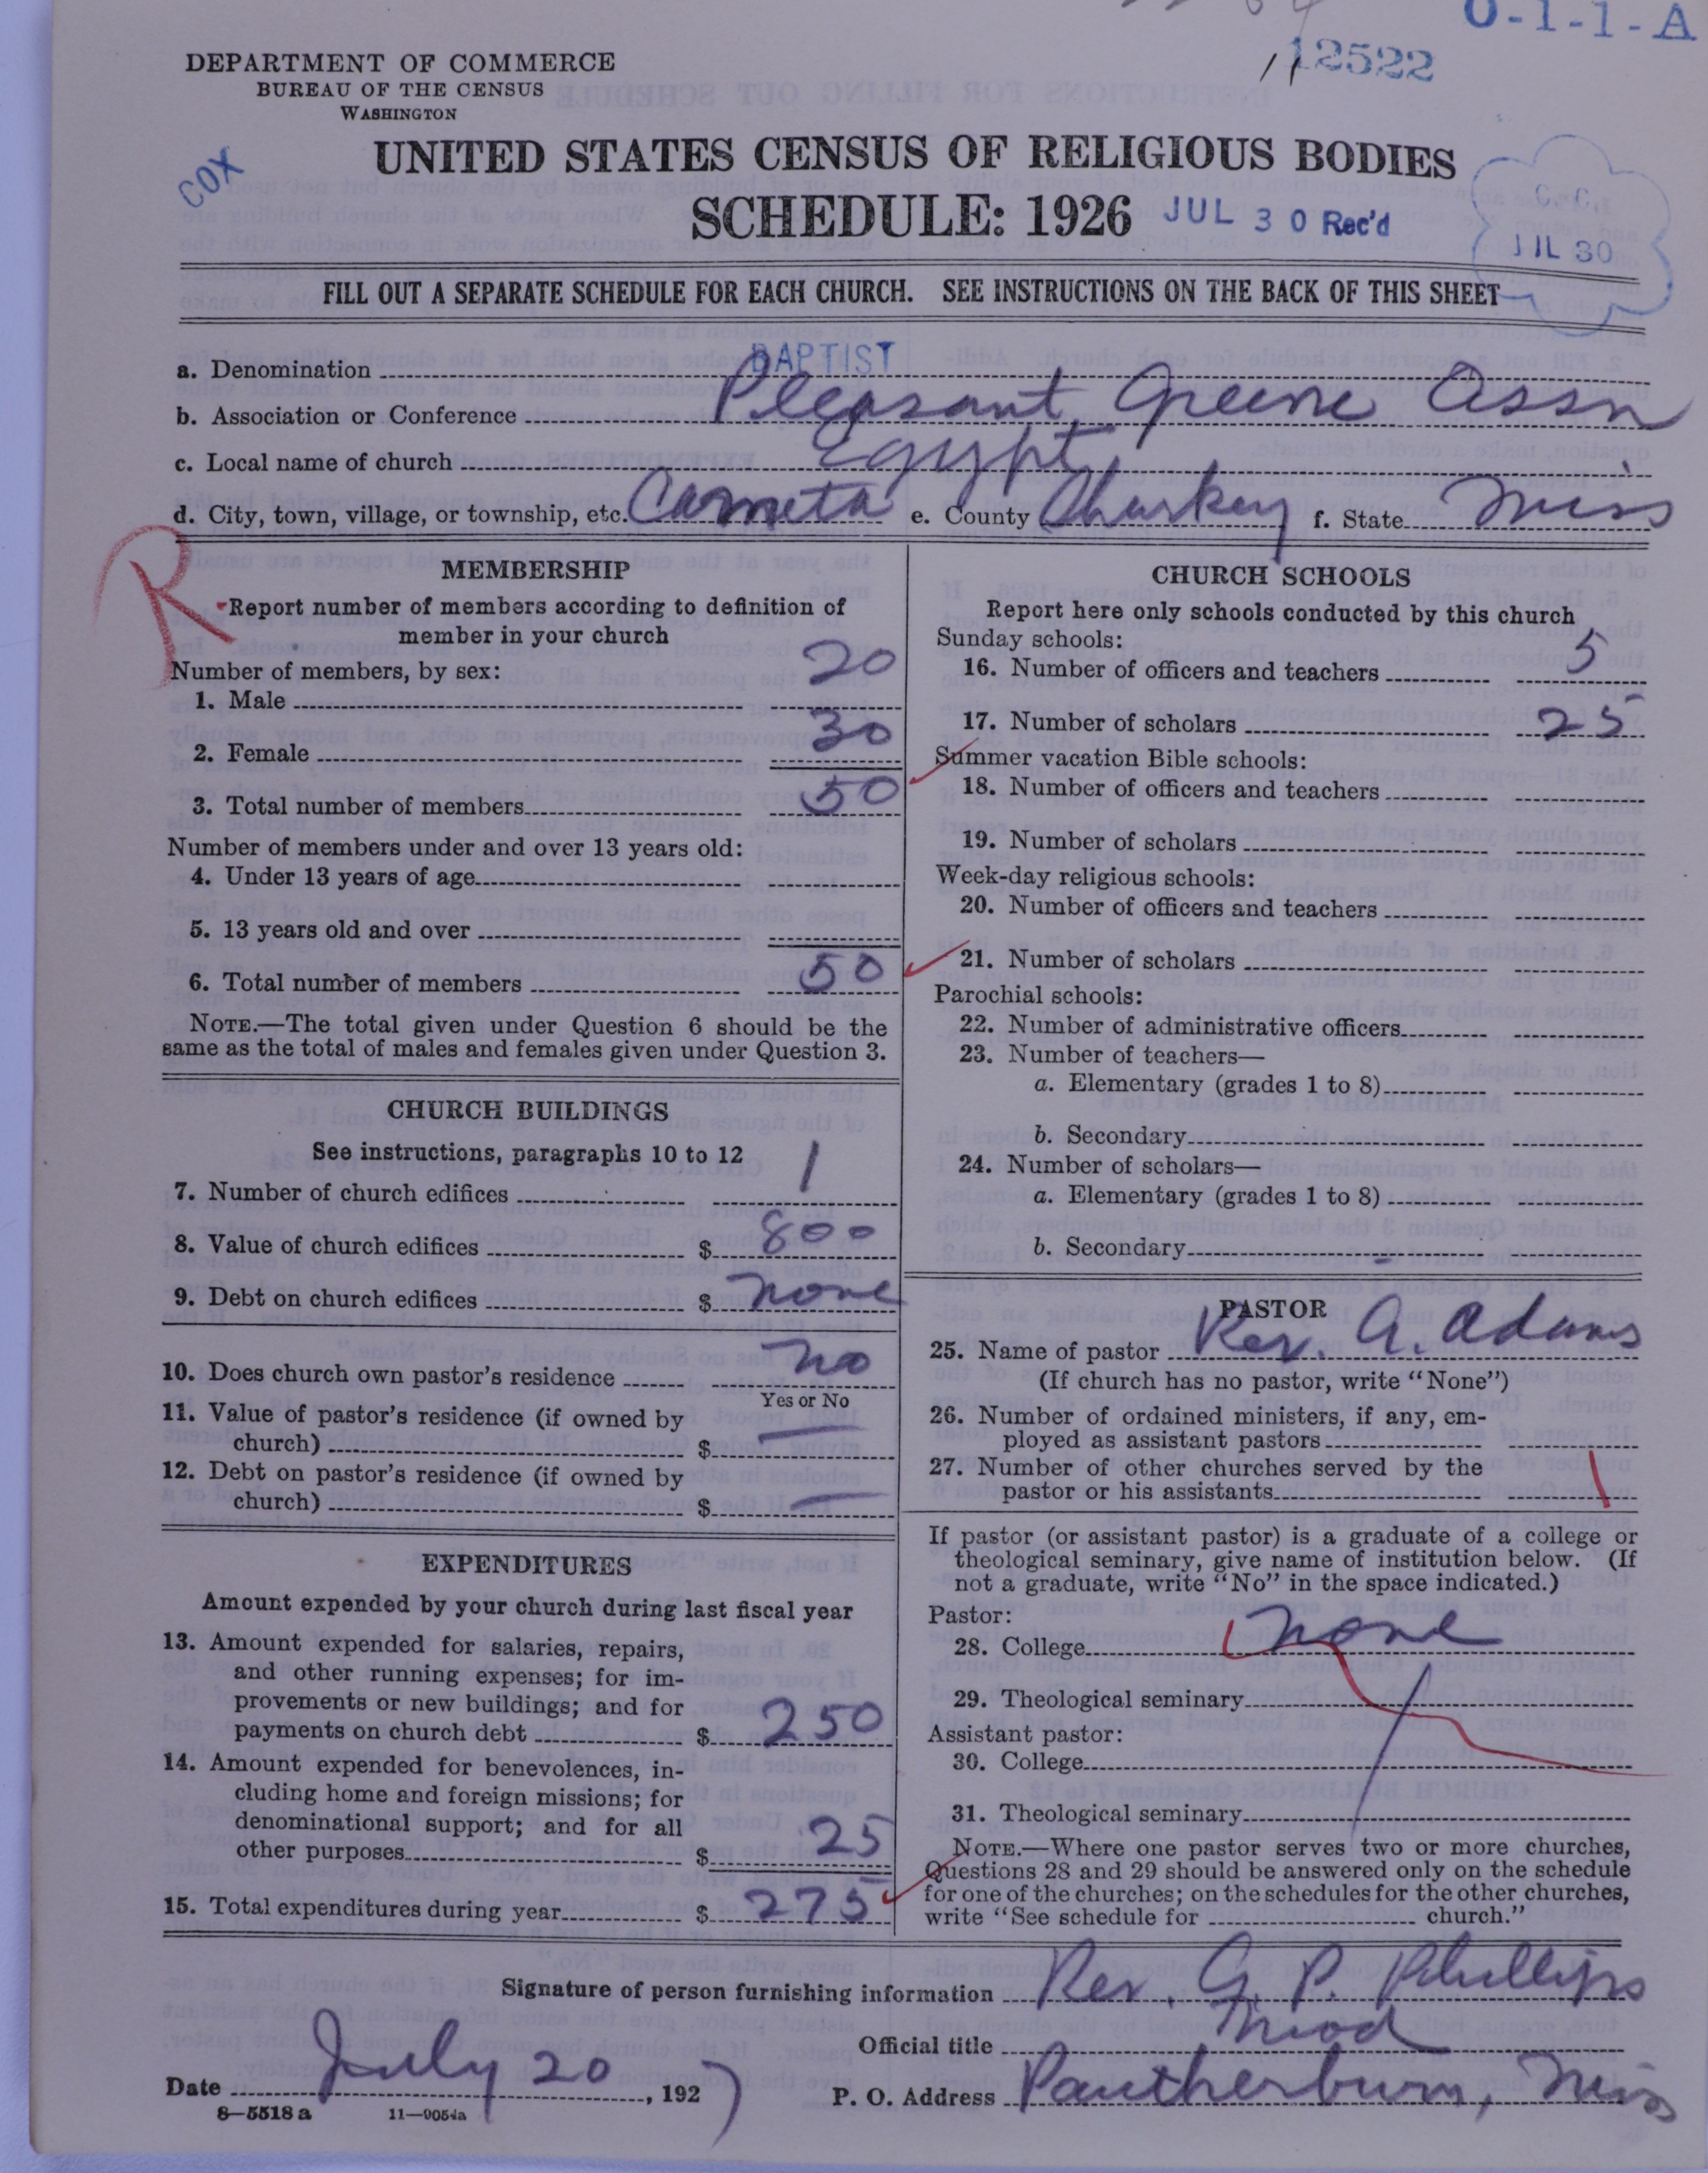 0-1-1-A
12522
DEPARTMENT OF COMMERCE
BUREAU OF THE CENSUS
WASHINGTON
COX
UNITED STATES CENSUS OF RELIGIOUS BODIES
SCHEDULE: 1926 JUL 30 Rec'd
C.C.
JUL 30
FILL OUT A SEPARATE SCHEDULE FOR EACH CHURCH. SEE INSTRUCTIONS ON THE BACK OF THIS SHEET
a. Denomination BAPTIST
b. Association or Conference Pleasant Greene Assn
c. Local name of church Egypt
d. City, town, village, or township, etc. Cameta e. County Sharkey f. State Miss
R
MEMBERSHIP
Report number of members according to definition of
member in your church
Number of members, by sex:
1. Male 20
2. Female 30
3. Total number of members 50
Number of members under and over 13 years old:
4. Under 13 years of age
5. 13 years old and over
6. Total number of members 50
NOTE.—The total given under Question 6 should be the
same as the total of males and females given under Question 3.
CHURCH BUILDINGS
See instructions, paragraphs 10 to 12
7. Number of church edifices 1
8. Value of church edifices $ 800
9. Debt on church edifices $ none
10. Does church own pastor's residence no
Yes or No
11. Value of pastor's residence (if owned by
church) $ —
12. Debt on pastor's residence (if owned by
church) $ —
EXPENDITURES
Amount expended by your church during last fiscal year
13. Amount expended for salaries, repairs,
and other running expenses; for im-
provements or new buildings; and for
payments on church debt $ 250
14. Amount expended for benevolences, in-
cluding home and foreign missions; for
denominational support; and for all
other purposes $ 25
15. Total expenditures during year $ 275
CHURCH SCHOOLS
Report here only schools conducted by this church
Sunday schools:
16. Number of officers and teachers 5
17. Number of scholars 25
Summer vacation Bible schools:
18. Number of officers and teachers
19. Number of scholars
Week-day religious schools:
20. Number of officers and teachers
21. Number of scholars
Parochial schools:
22. Number of administrative officers
23. Number of teachers—
a. Elementary (grades 1 to 8)
b. Secondary
24. Number of scholars—
a. Elementary (grades 1 to 8)
b. Secondary
PASTOR
25. Name of pastor Rev. A. Adams
(If church has no pastor, write "None")
26. Number of ordained ministers, if any, em-
ployed as assistant pastors
27. Number of other churches served by the
pastor or his assistants 1
If pastor (or assistant pastor) is a graduate of a college or
theological seminary, give name of institution below. (If
not a graduate, write "No" in the space indicated.)
Pastor:
28. College none
29. Theological seminary
Assistant pastor:
30. College
31. Theological seminary
NOTE.—Where one pastor serves two or more churches,
Questions 28 and 29 should be answered only on the schedule
for one of the churches; on the schedules for the other churches,
write "See schedule for church."
Signature of person furnishing information Rev. G. P. Phillips
Official title Mod
Date July 20, 1927 P. O. Address Pantherburn, Miss
8—5518 a 11—9054a